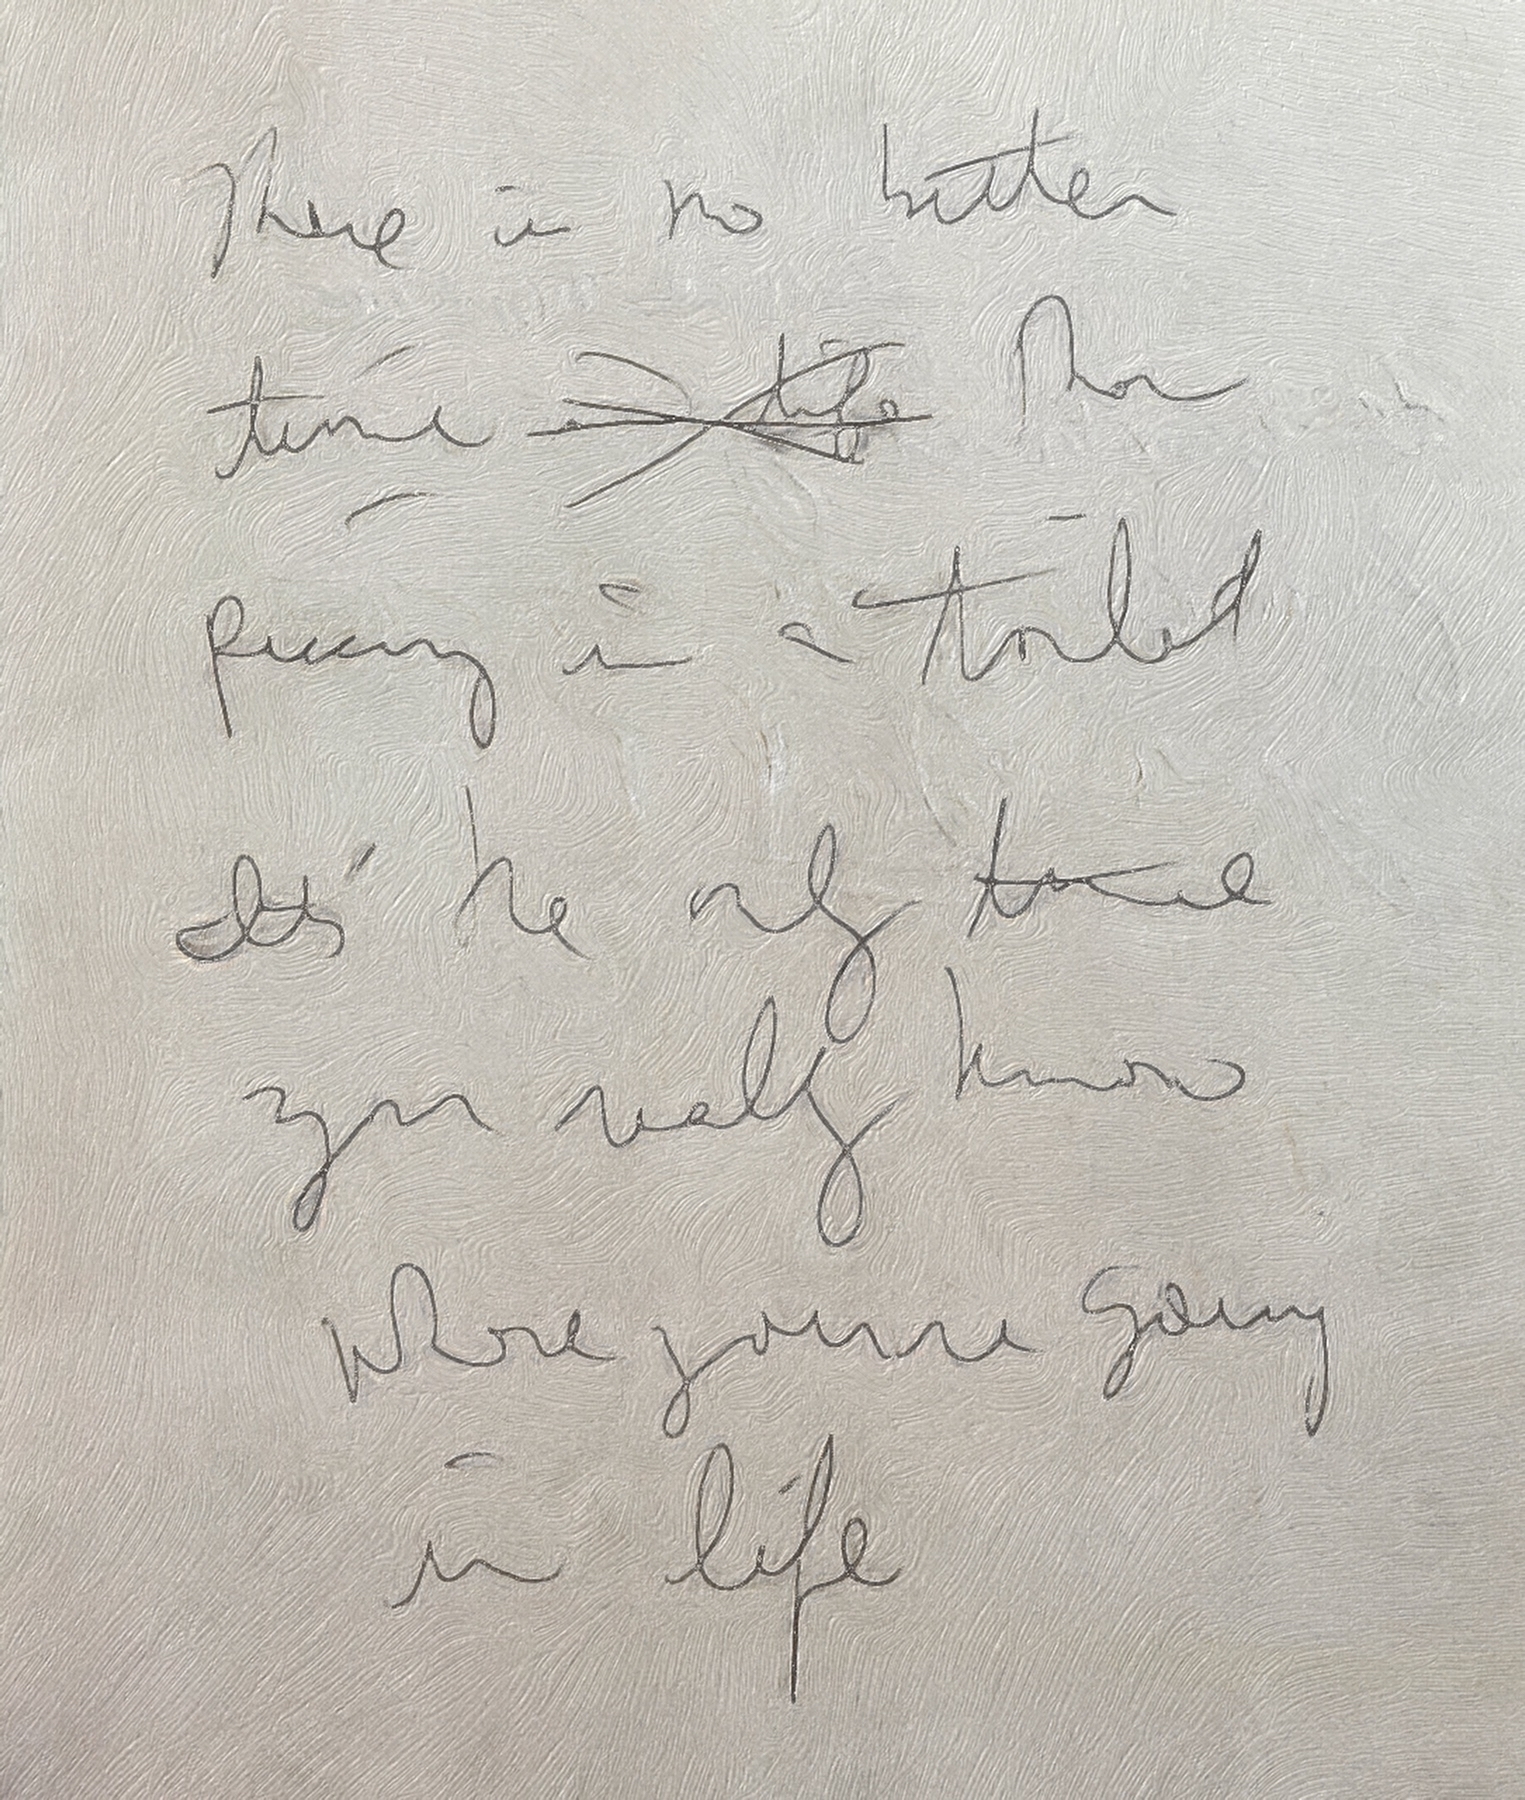 There is no better
time in life Than
pissing in a toilet
It's the only time
you really know
where you're going
in life